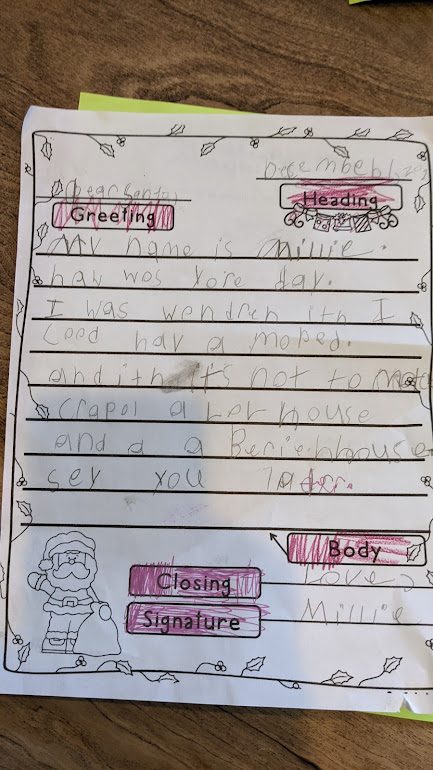 December 1, 202
Dear Santa,
Heading
Greeting
My name is Millie.
haw wos yore day.
I was wendren ith I
cood hav a moped.
and ith it's not to
crapol a
mouse
and a a
sey you later.
Body
Love,
Closing
Millie
Signature